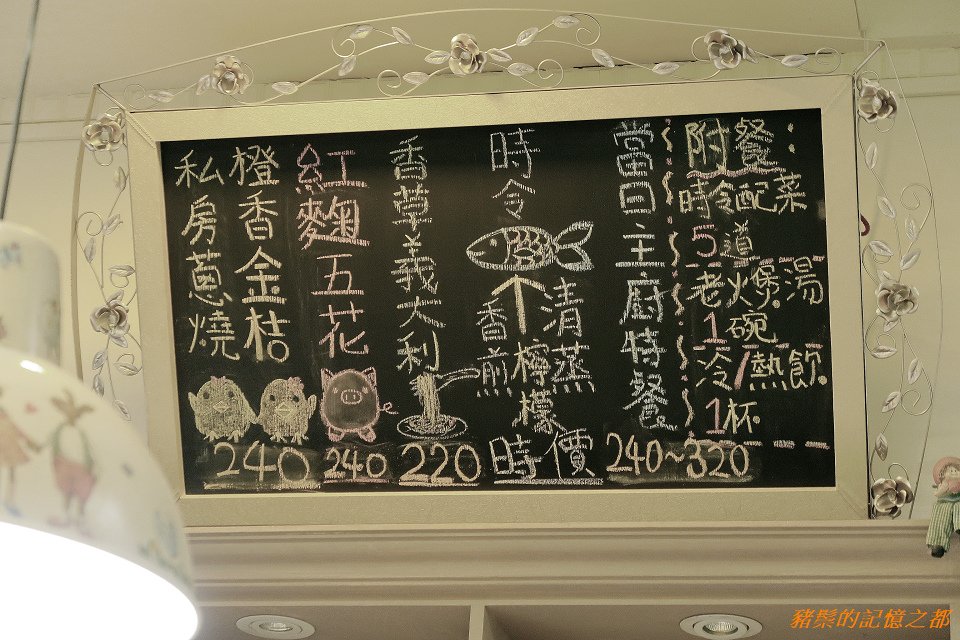 附餐：
時令配菜
5道
老火煲湯
1碗
冷/熱飲
1杯
當日主廚特餐
240~320
時令
清蒸
檸檬
香煎
時價
香草義大利
220
紅麴五花
240
橙香金桔
私房蔥燒
240
豬鬃的記憶之都